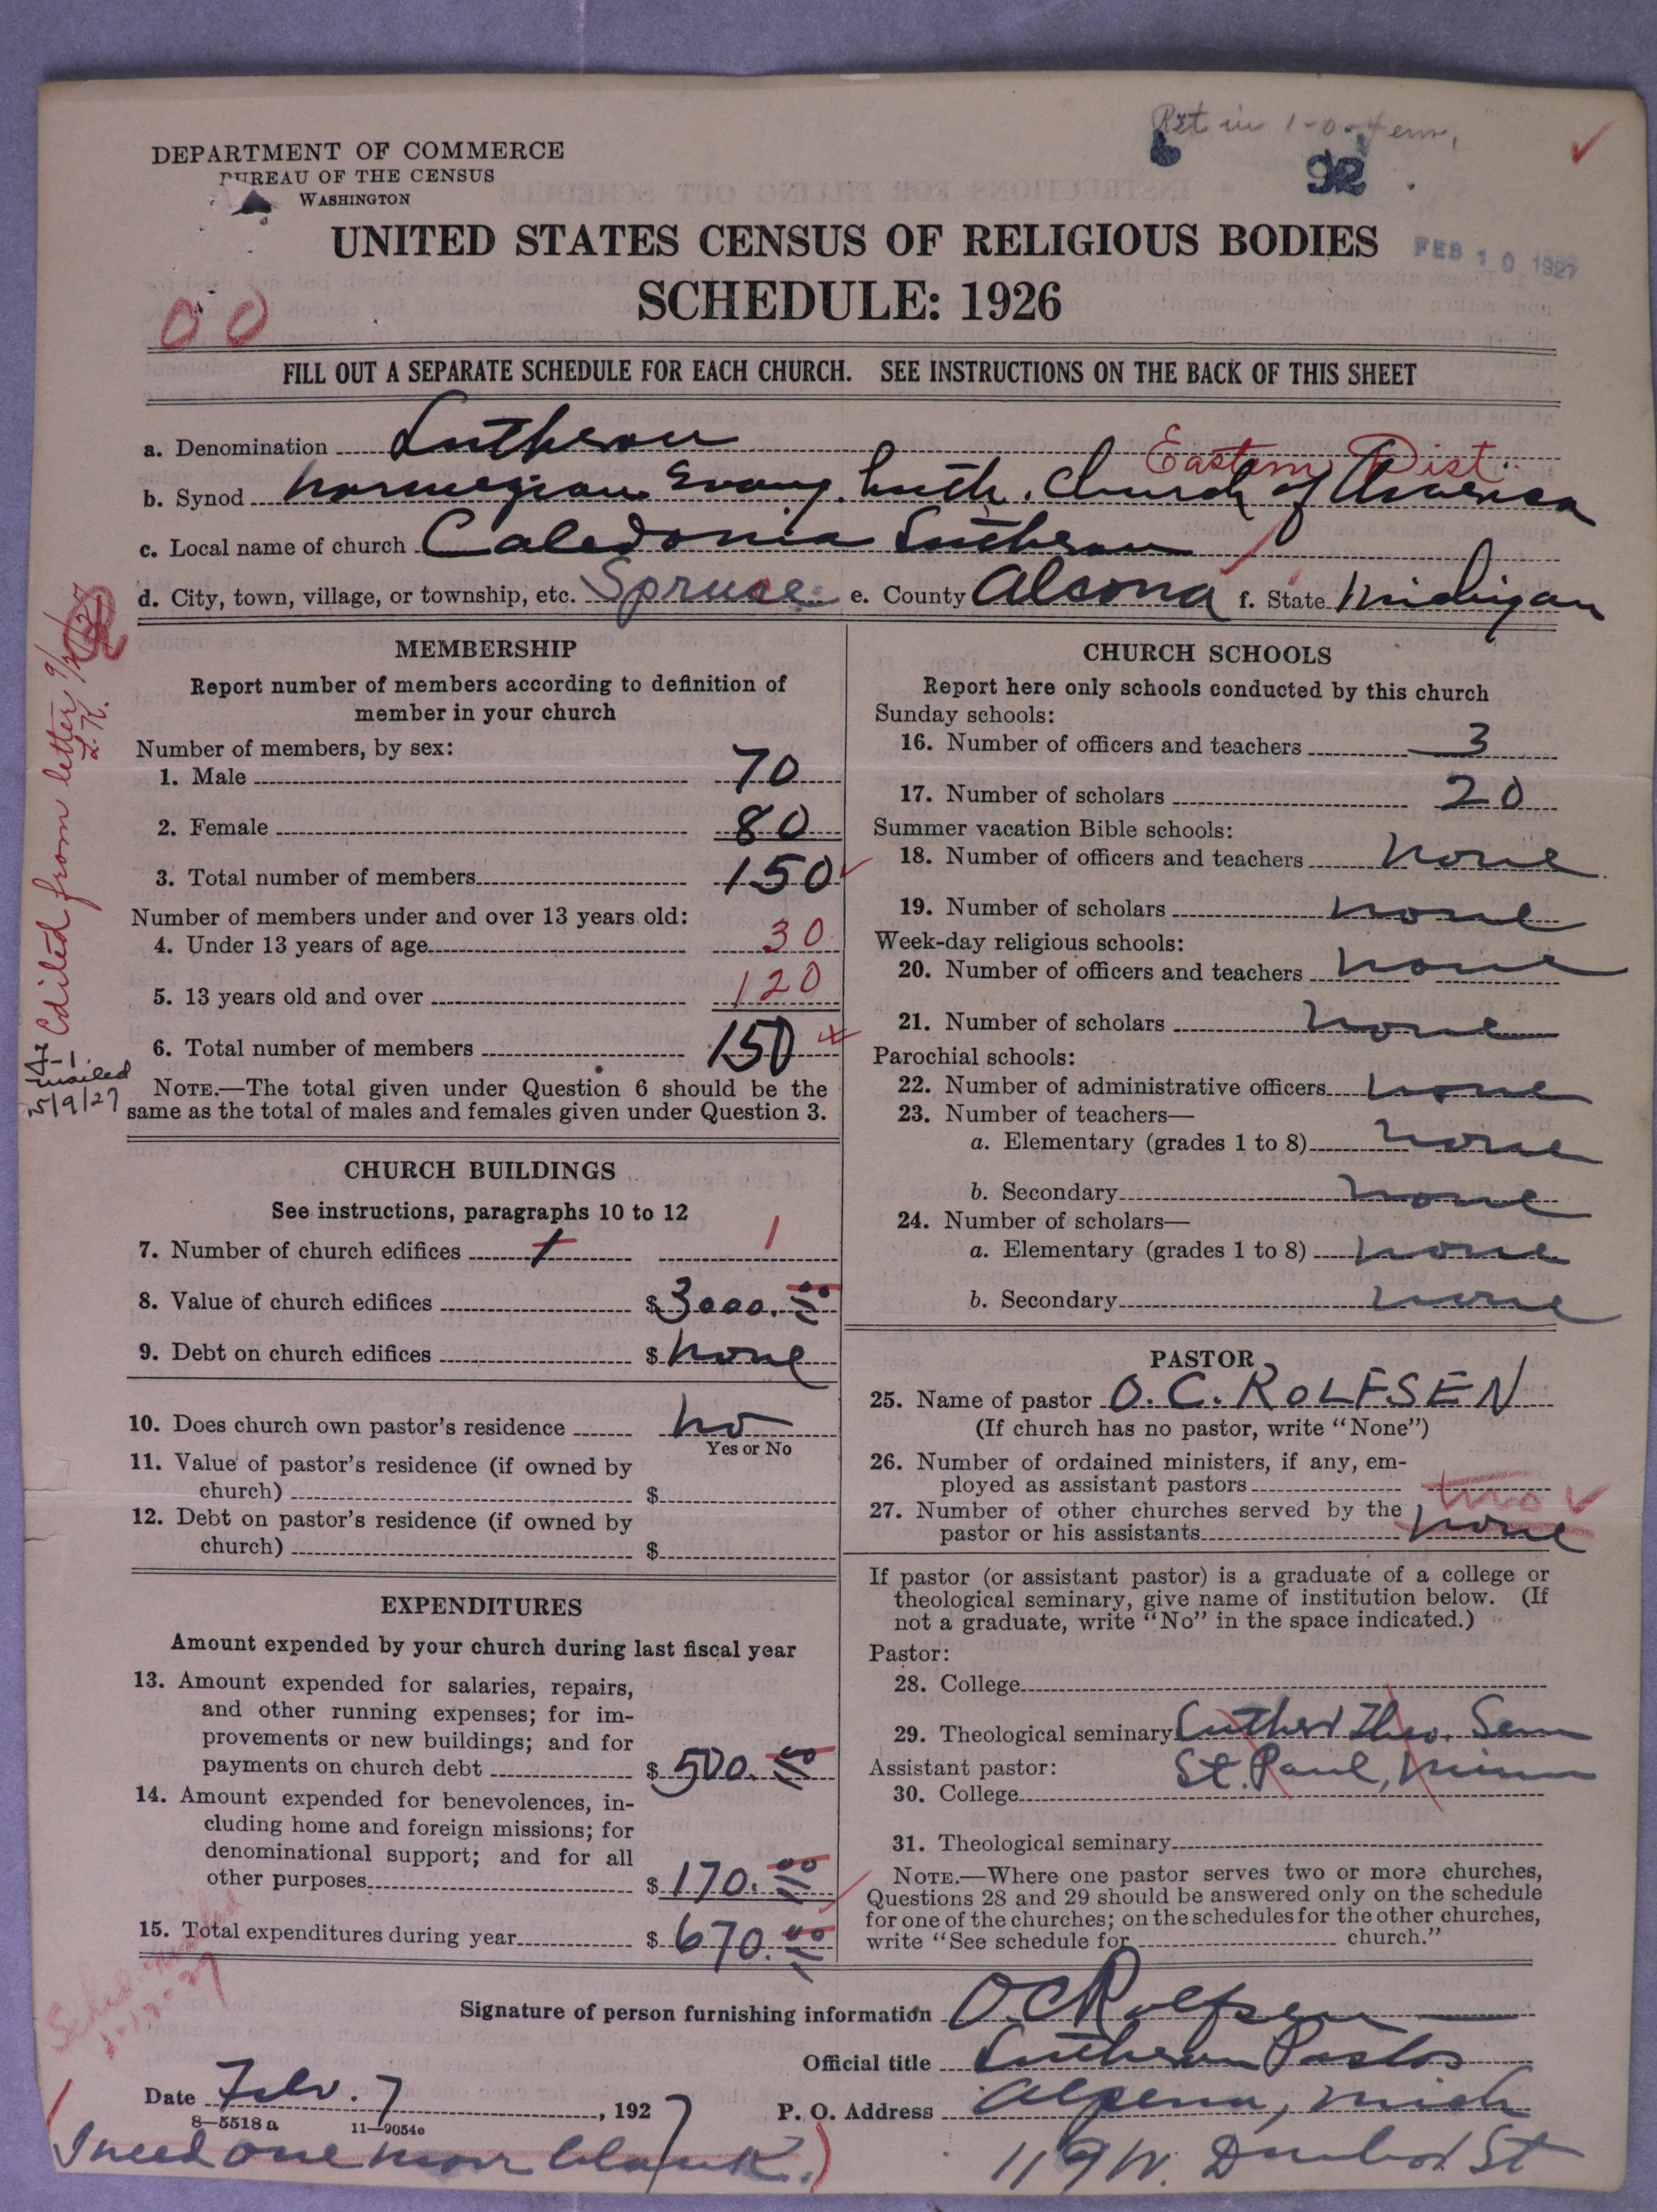 Ret in 1-0-4 em,
92
DEPARTMENT OF COMMERCE
BUREAU OF THE CENSUS
WASHINGTON
UNITED STATES CENSUS OF RELIGIOUS BODIES
FEB 10 1927
SCHEDULE: 1926
00
FILL OUT A SEPARATE SCHEDULE FOR EACH CHURCH. SEE INSTRUCTIONS ON THE BACK OF THIS SHEET
a. Denomination Lutheran
Eastern Dist.
b. Synod Norwegian Evang. Luth. Church of America
c. Local name of church Caledonia Lutheran
d. City, town, village, or township, etc. Spruce e. County Alcona f. State Michigan
MEMBERSHIP
Report number of members according to definition of
member in your church
Number of members, by sex:
1. Male 70
2. Female 80
3. Total number of members 150
Number of members under and over 13 years old:
4. Under 13 years of age 30
5. 13 years old and over 120
6. Total number of members 150
NOTE.—The total given under Question 6 should be the
same as the total of males and females given under Question 3.
Edited from letter
L.K.
F-1.
mailed
5/9/27
CHURCH BUILDINGS
See instructions, paragraphs 10 to 12
7. Number of church edifices 1 1
8. Value of church edifices $ 3000.00
9. Debt on church edifices $ none
10. Does church own pastor's residence no
Yes or No
11. Value of pastor's residence (if owned by
church) $
12. Debt on pastor's residence (if owned by
church) $
EXPENDITURES
Amount expended by your church during last fiscal year
13. Amount expended for salaries, repairs,
and other running expenses; for im-
provements or new buildings; and for
payments on church debt $ 500.00
14. Amount expended for benevolences, in-
cluding home and foreign missions; for
denominational support; and for all
other purposes $ 170.00
15. Total expenditures during year $ 670.00
CHURCH SCHOOLS
Report here only schools conducted by this church
Sunday schools:
16. Number of officers and teachers 3
17. Number of scholars 20
Summer vacation Bible schools:
18. Number of officers and teachers none
19. Number of scholars none
Week-day religious schools:
20. Number of officers and teachers none
21. Number of scholars none
Parochial schools:
22. Number of administrative officers none
23. Number of teachers—
a. Elementary (grades 1 to 8) none
b. Secondary none
24. Number of scholars—
a. Elementary (grades 1 to 8) none
b. Secondary none
PASTOR
25. Name of pastor O. C. ROLFSEN
(If church has no pastor, write "None")
26. Number of ordained ministers, if any, em-
ployed as assistant pastors
two
27. Number of other churches served by the
pastor or his assistants none
If pastor (or assistant pastor) is a graduate of a college or
theological seminary, give name of institution below. (If
not a graduate, write "No" in the space indicated.)
Pastor:
28. College
29. Theological seminary Luther Theo. Sem
St. Paul, Minn
Assistant pastor:
30. College
31. Theological seminary
NOTE.—Where one pastor serves two or more churches,
Questions 28 and 29 should be answered only on the schedule
for one of the churches; on the schedules for the other churches,
write "See schedule for church."
Sched. mailed
Signature of person furnishing information O C Rolfsen
Official title Lutheran Pastor
Date Febr. 7, 1927
P. O. Address Alpena, Mich
8—5518a 11—9054c
I need one more blank.)
119 W. Dunbar St